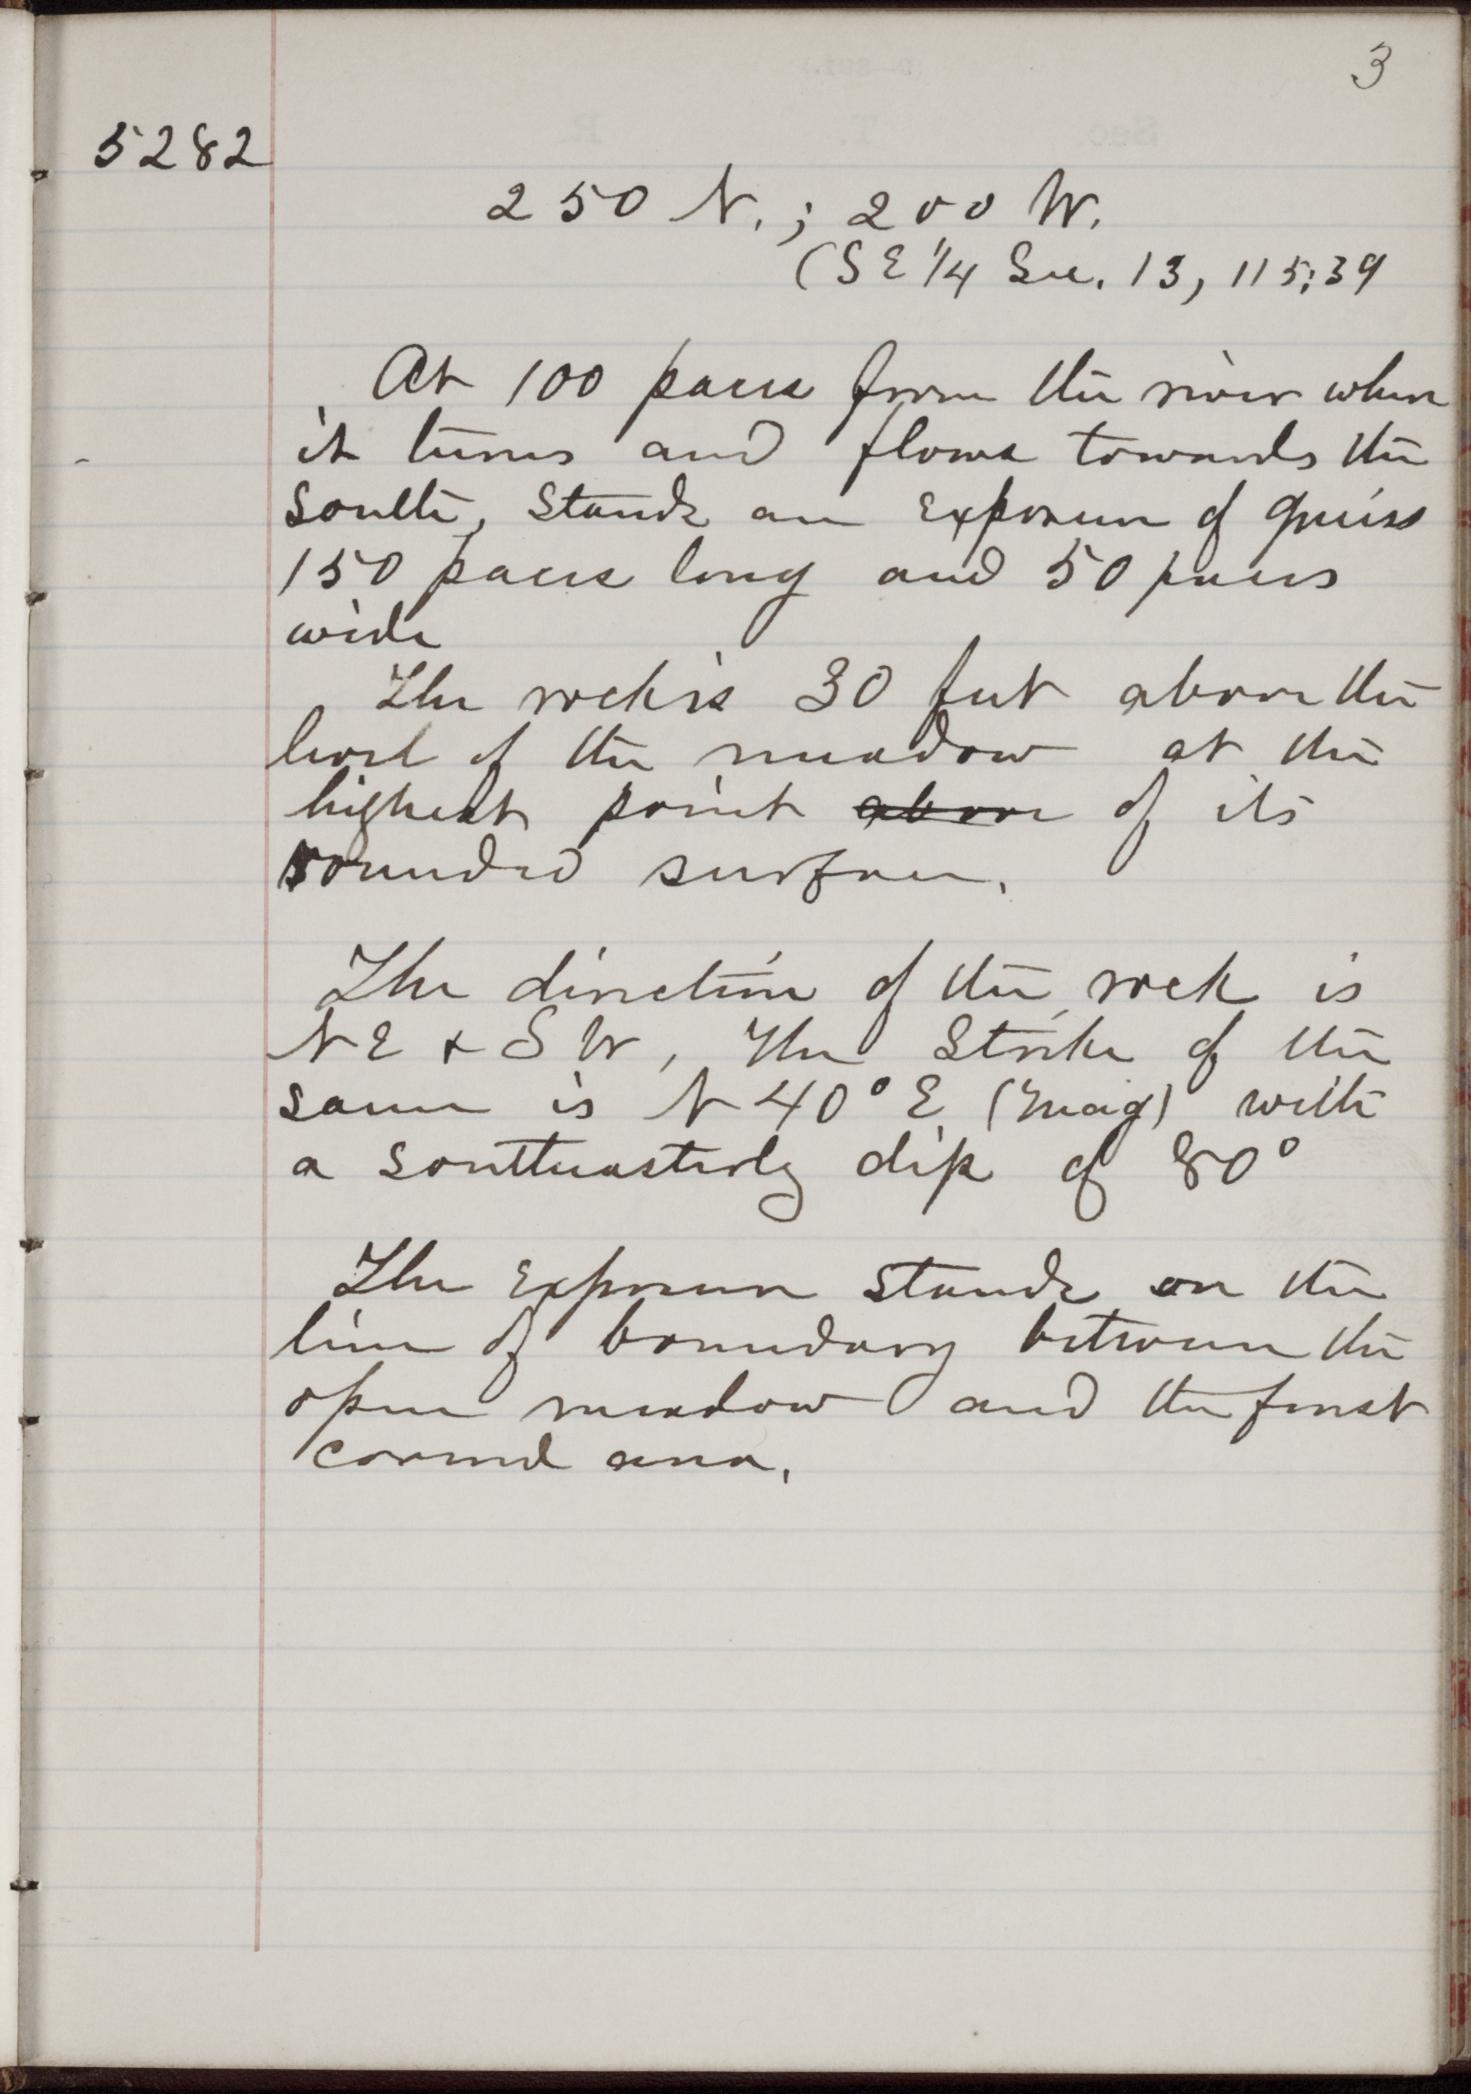 3
5282
250 N.; 200 W.
(SE 1/4 Sec. 13, 115:39
At 100 paces from the river where
it turns and flows towards the
south, stands an exposure of gneiss
150 paces long and 50 paces
wide
The rock is 30 feet above the
level of the meadow at the
highest point above of its
rounded surface.
The direction of the rock is
NE & SW, The Strike of the
same is N 40° E (Mag) with
a southeasterly dip of 80°
The exposure stands on the
line of boundary between the
open meadow and the forest
covered area.